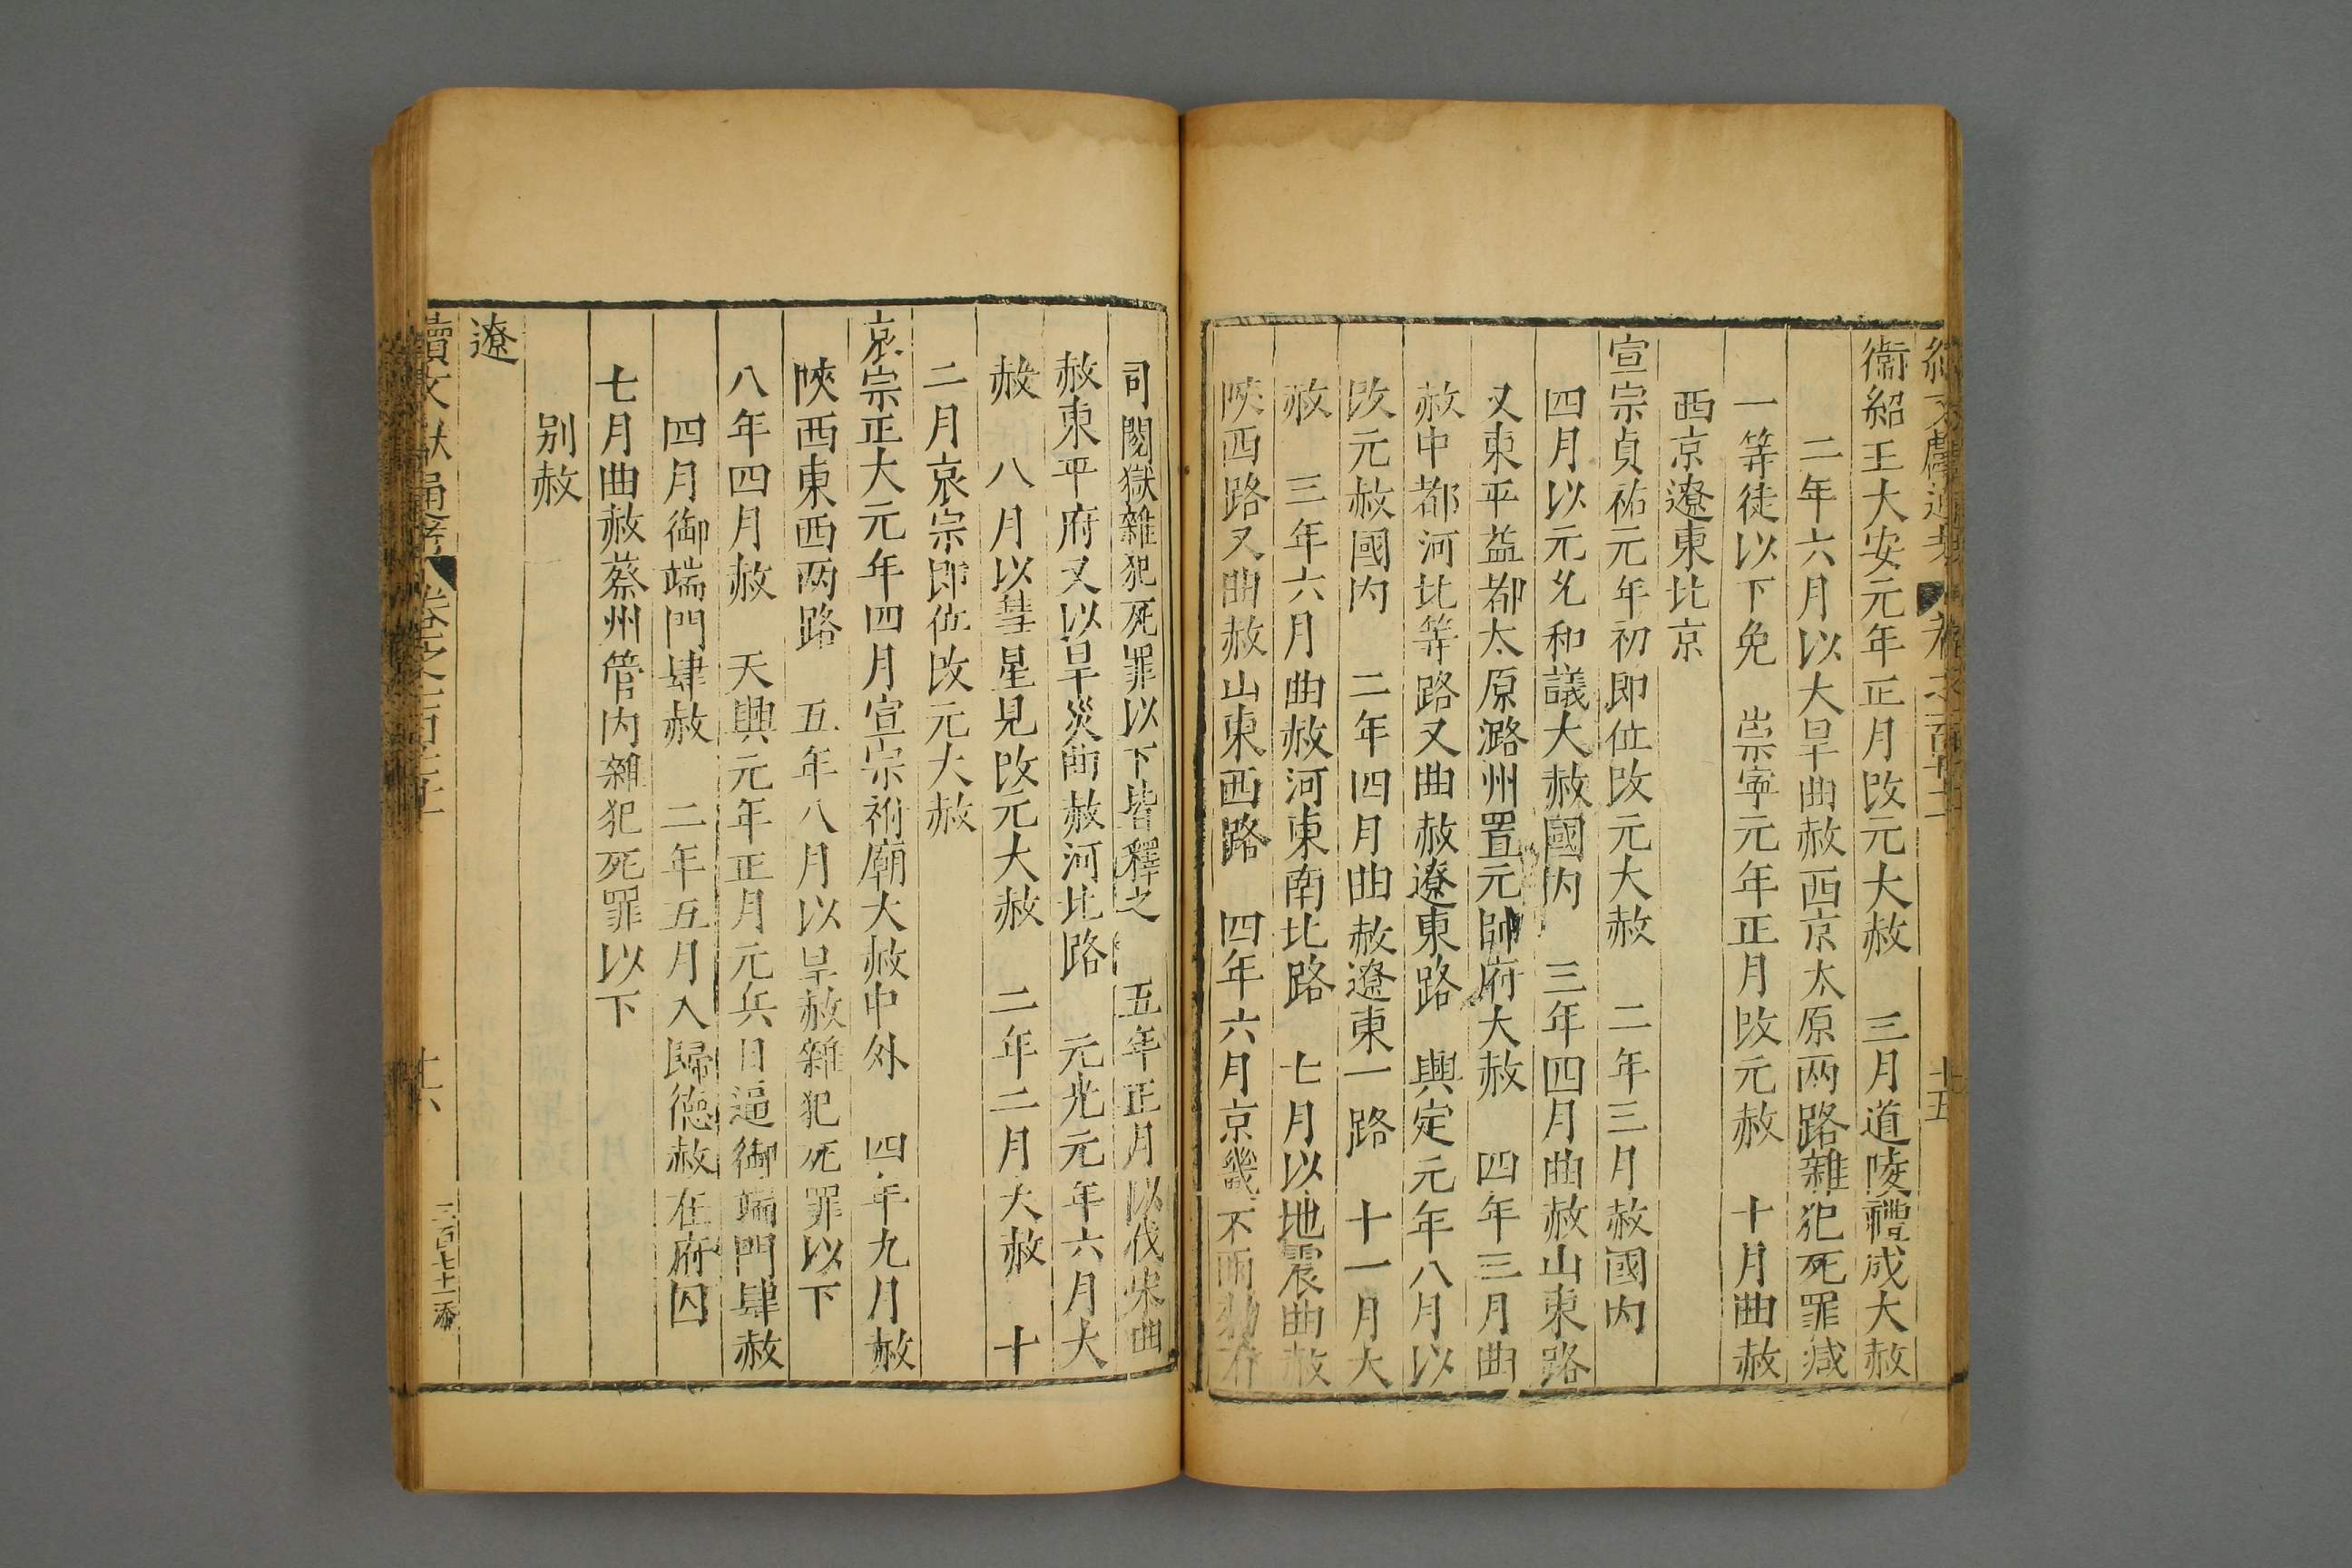 衞紹王大安元年正月改元大赦　三月道陵禮成大赦
二年六月以大旱曲赦西京太原两路雜犯死罪減
一等徒以下免　崇寜元年正月改元赦　十月曲赦
西京遼東北京
宣宗貞祐元年初即位改元大赦　二年三月赦國内
四月以元兊和議大赦國内　三年四月曲赦山東路
又東平益都太原潞州置元帥府大赦　四年三月曲
赦中都河北等路又曲赦遼東路　興定元年八月以
改元赦國内　二年四月曲赦遼東一路　十一月大
赦　三年六月曲赦河東南北路　七月以地震曲赦
陜西路又曲赦山東西路　四年六月京畿不雨勑有
司閱獄雜犯死罪以下皆釋之　五年正月以伐宋曲
赦東平府又以旱災曲赦河北路　元光元年六月大
赦　八月以彗星見改元大赦　二年二月大赦　十
二月哀宗即位改元大赦
哀宗正大元年四月宣宗祔廟大赦中外　四年九月赦
陜西東西两路　五年八月以旱赦雜犯死罪以下
八年四月赦　天興元年正月元兵日逼御端門肆赦
四月御端門肆赦　二年五月入歸德赦在府囚
七月曲赦蔡州管内雜犯死罪以下
别赦
遼
續文献通考　卷之一百
十六